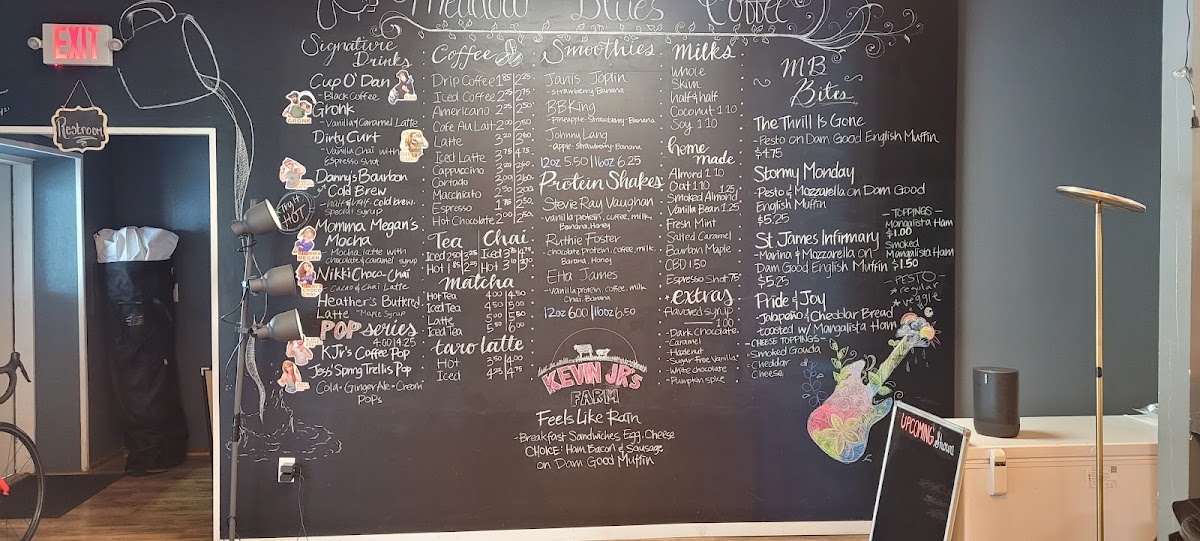 Meadow Blues Coffee
EXIT
Restroom
Signature
Drinks
Cup O' Dan
-Black Coffee
Gronk
-Vanilla & Caramel Latte
GRONK
Dirty Curt
-Vanilla Chai with
Espresso Shot
Danny's Bourbon
Cold Brew
-half & half cold brew
special syrup
Try it
HOT
Momma Megan's
Mocha
-Mocha latte with
chocolate & caramel syrup
MEGAN
Nikki Choco-Chai
-Cacao & Chai Latte
Heather's Buttered
Latte -Maple Syrup
POP series
4.00|4.25
KJr's Coffee Pop
Jess' Spring Trellis Pop
Cola · Ginger Ale · Cream
POPs
Coffee
Drip Coffee 1.85 2.25
Iced Coffee 2.25 2.75
Americano 2.25 2.50
Cafe Au Lait 2.00 2.50
Latte
Iced Latte 3.75 4.75
Cappuccino
Cortado
Macchiato
Espresso
Hot Chocolate 2.00 2.50
Tea
Iced 2.50
Hot
Chai
Iced
Hot
matcha
Hot Tea 4.00 4.50
Iced Tea 4.50 5.00
Latte
Iced Tea 5.50 6.00
taro latte
Hot 3.50 4.00
Iced 4.25 4.75
Smoothies
Janis Joplin
-strawberry Banana
BB King
-Pineapple-Strawberry-Banana
Johnny Lang
-apple-strawberry-Banana
12oz 5.50 | 16oz 6.25
Protein Shakes
Stevie Ray Vaughan
-vanilla protein, coffee, milk,
Banana, Honey
Ruthie Foster
-chocolate protein, coffee, milk,
Banana, Honey
Etta James
-vanilla protein, coffee, milk
Chai, Banana
12oz 6.00 | 16oz 6.50
KEVIN JR's
FARM
Feels Like Rain
-Breakfast Sandwiches, Egg, Cheese
CHOICE: Ham, Bacon & Sausage
on Dam Good Muffin
Milks
Whole
Skim
half & half
Coconut 1.10
Soy 1.10
home
made
Almond 1.10
Oat 1.10
Smoked Almond 1.25
Vanilla Bean 1.25
Fresh Mint
Salted Caramel
Bourbon Maple
CBD 1.50
Espresso Shot 75¢
extras
flavored syrup
1.00
-Dark Chocolate
-Caramel
-Hazelnut
-Sugar-Free Vanilla
-White chocolate
-Pumpkin spice
MB
Bites
The Thrill Is Gone
-Pesto on Dam Good English Muffin
$4.75
Stormy Monday
-Pesto & Mozzarella on Dam Good
English Muffin
$5.25
St James Infirmary
-Marina & Mozzarella on
Dam Good English Muffin
$5.25
Pride & Joy
-Jalapeño & Cheddar Bread
-toasted w/ Mangalista Ham
-CHEESE TOPPINGS-
-Smoked Gouda
-Cheddar
Cheese
-TOPPINGS-
Mangalista Ham
$1.00
Smoked
Mangalista Ham
$1.50
-PESTO-
*regular
*veggie
UPCOMING Shows